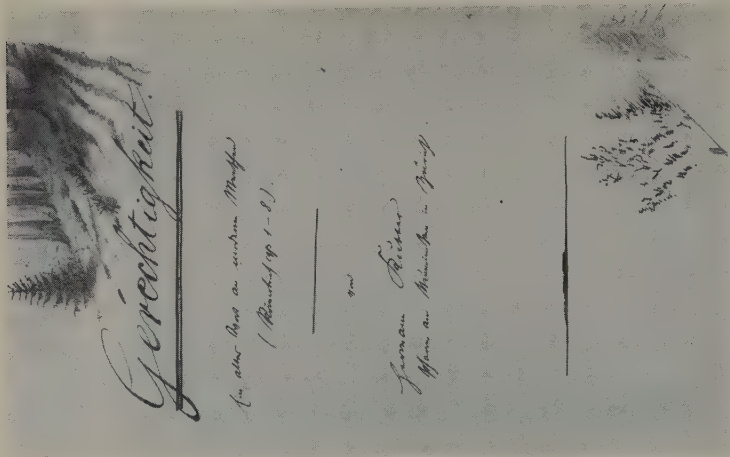 Gerechtigkeit.
Ein altes Wort an
(Römerbrief Cap 1-8.)
von
Hermann Kutter
Pfarrer am Neumünster in Zürich.